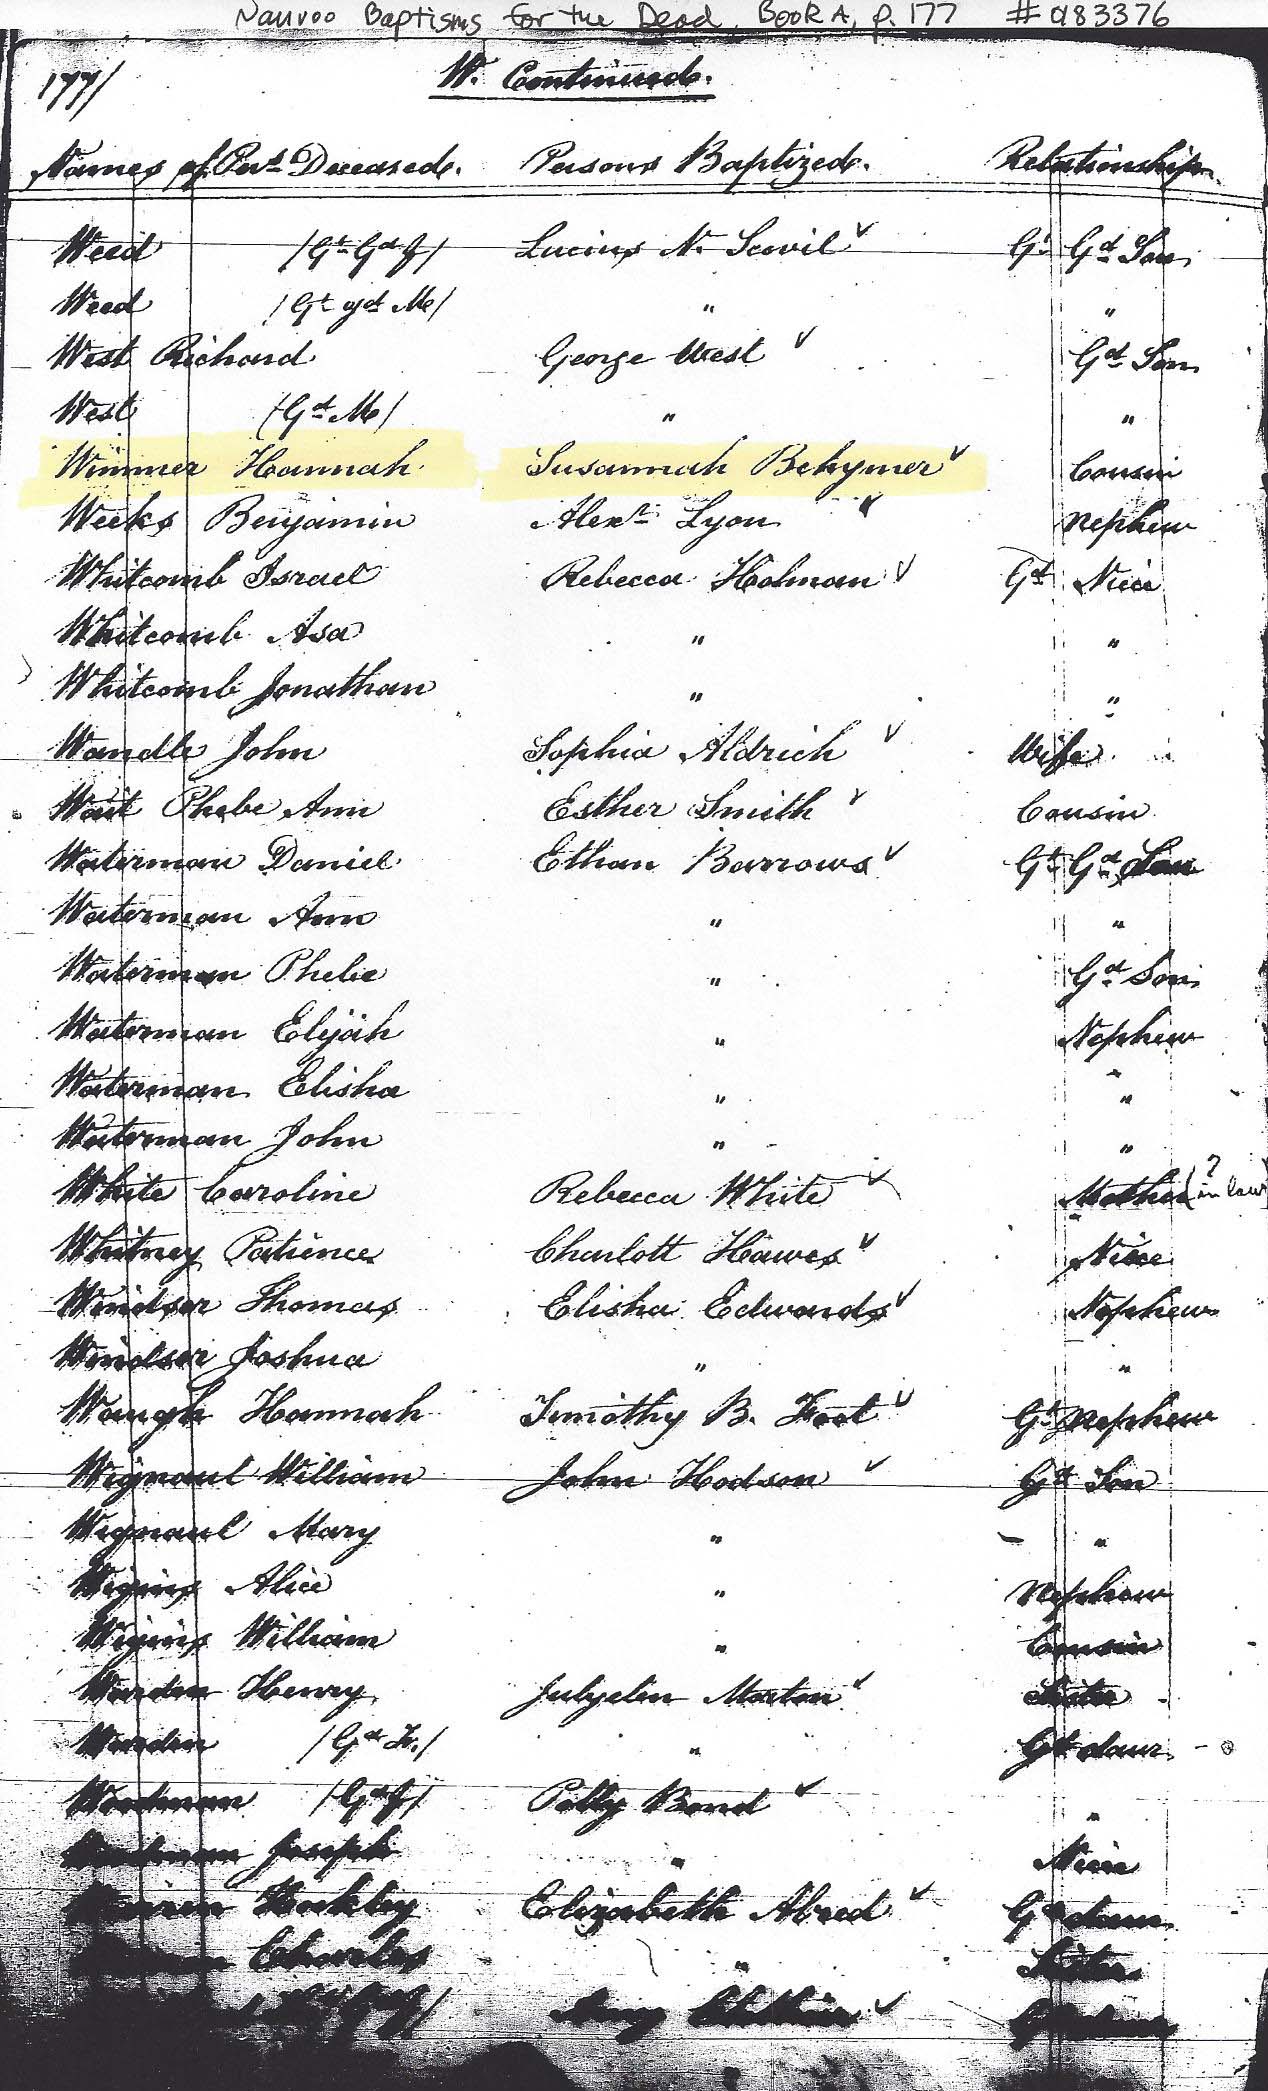 Nauvoo Baptisms for the Dead, Book A, p. 177 #0183376
177/ W. Continued.
Names of Pers Deceased. Persons Baptized. Relationship.
Weed /Gt Gd F/ Lucius N. Scovil ✓ Gt Gd Son
Weed /Gt Gd M/ " "
West Richard George West ✓ Gd Son
West /Gd M/ " "
Wimmer Hannah Susannah Behymer ✓ Cousin
Weeks Benjamin Alexr Lyon " Nephew
Whitcomb Israel Rebecca Holman ✓ Gd Niece
Whitcomb Asa " "
Whitcomb Jonathan " "
Wandle John Sophia Aldrich ✓ Wife
Wait Phebe Ann Esther Smith ✓ Cousin
Waterman Daniel Ethan Barrows ✓ Gt Gd Son
Waterman Ann " "
Waterman Phebe " Gd Son
Waterman Elijah " Nephew
Waterman Elisha " "
Waterman John " "
White Caroline Rebecca White ✓ Mother (? in law)
Whitney Patience Charlott Hawes ✓ Niece
Windser Thomas Elisha Edwards ✓ Nephew
Windser Joshua " "
Waugh Hannah Timothy B. Foot ✓ Gt Nephew
Wignaul William John Hodson ✓ Gd Son
Wignaul Mary " "
Wigins Alice " Nephew
Wigins William " Cousin
Warden Henry Morton ✓ Sister
Warden /Gd F./ " Gd daur
Woodman /Gd F/ Polly Bond ✓ "
Woodman Joseph " Niece
Elizabeth ✓ Gd daur
Charles " Sister
✓